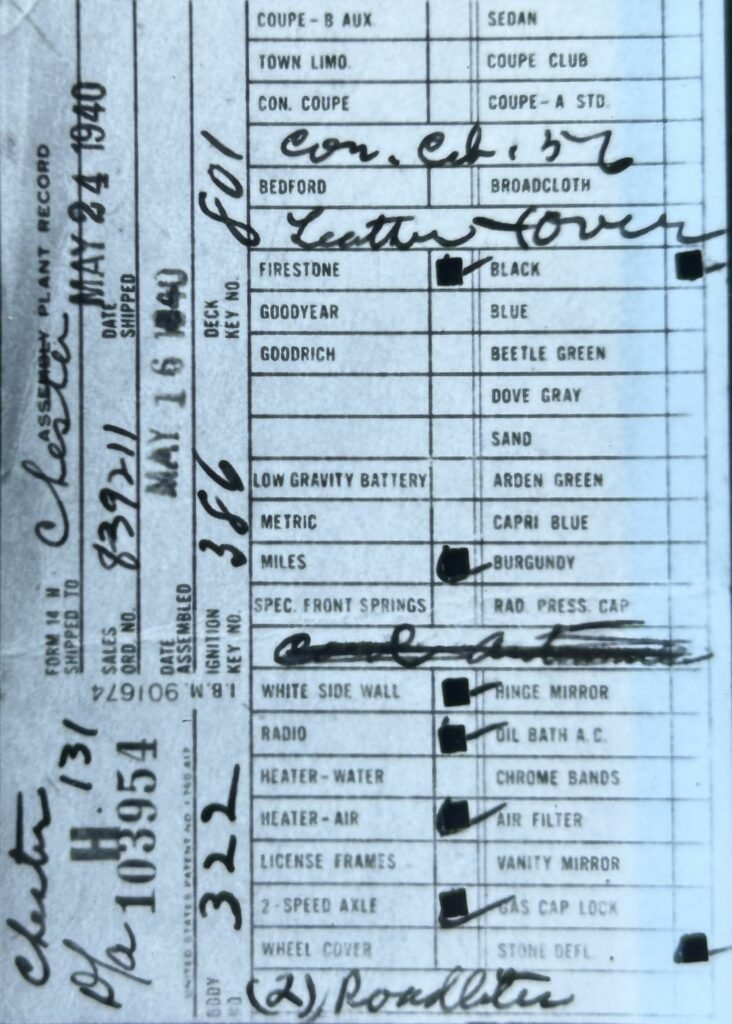 FORM 14 H ASSEMBLY PLANT RECORD
SHIPPED TO Chester
SALES ORD NO. 839211 DATE SHIPPED MAY 24 1940
DATE ASSEMBLED MAY 16 1940
IGNITION KEY NO. 386 DECK KEY NO. 801
I.B.M. 901674
Chester
H. 131
P/a 103954
UNITED STATES PATENT NO.
BODY NO 322
COUPE-B AUX SEDAN
TOWN LIMO. COUPE CLUB
CON. COUPE COUPE-A STD.
Con. Cab. 56
BEDFORD BROADCLOTH
Leather
FIRESTONE BLACK
GOODYEAR BLUE
GOODRICH BEETLE GREEN
DOVE GRAY
SAND
LOW GRAVITY BATTERY ARDEN GREEN
METRIC CAPRI BLUE
MILES BURGUNDY
SPEC. FRONT SPRINGS RAD. PRESS. CAP
WHITE SIDE WALL HINGE MIRROR
RADIO OIL BATH A.C.
HEATER-WATER CHROME BANDS
HEATER-AIR AIR FILTER
LICENSE FRAMES VANITY MIRROR
2-SPEED AXLE GAS CAP LOCK
WHEEL COVER STONE DEFL.
(2) Roadlites